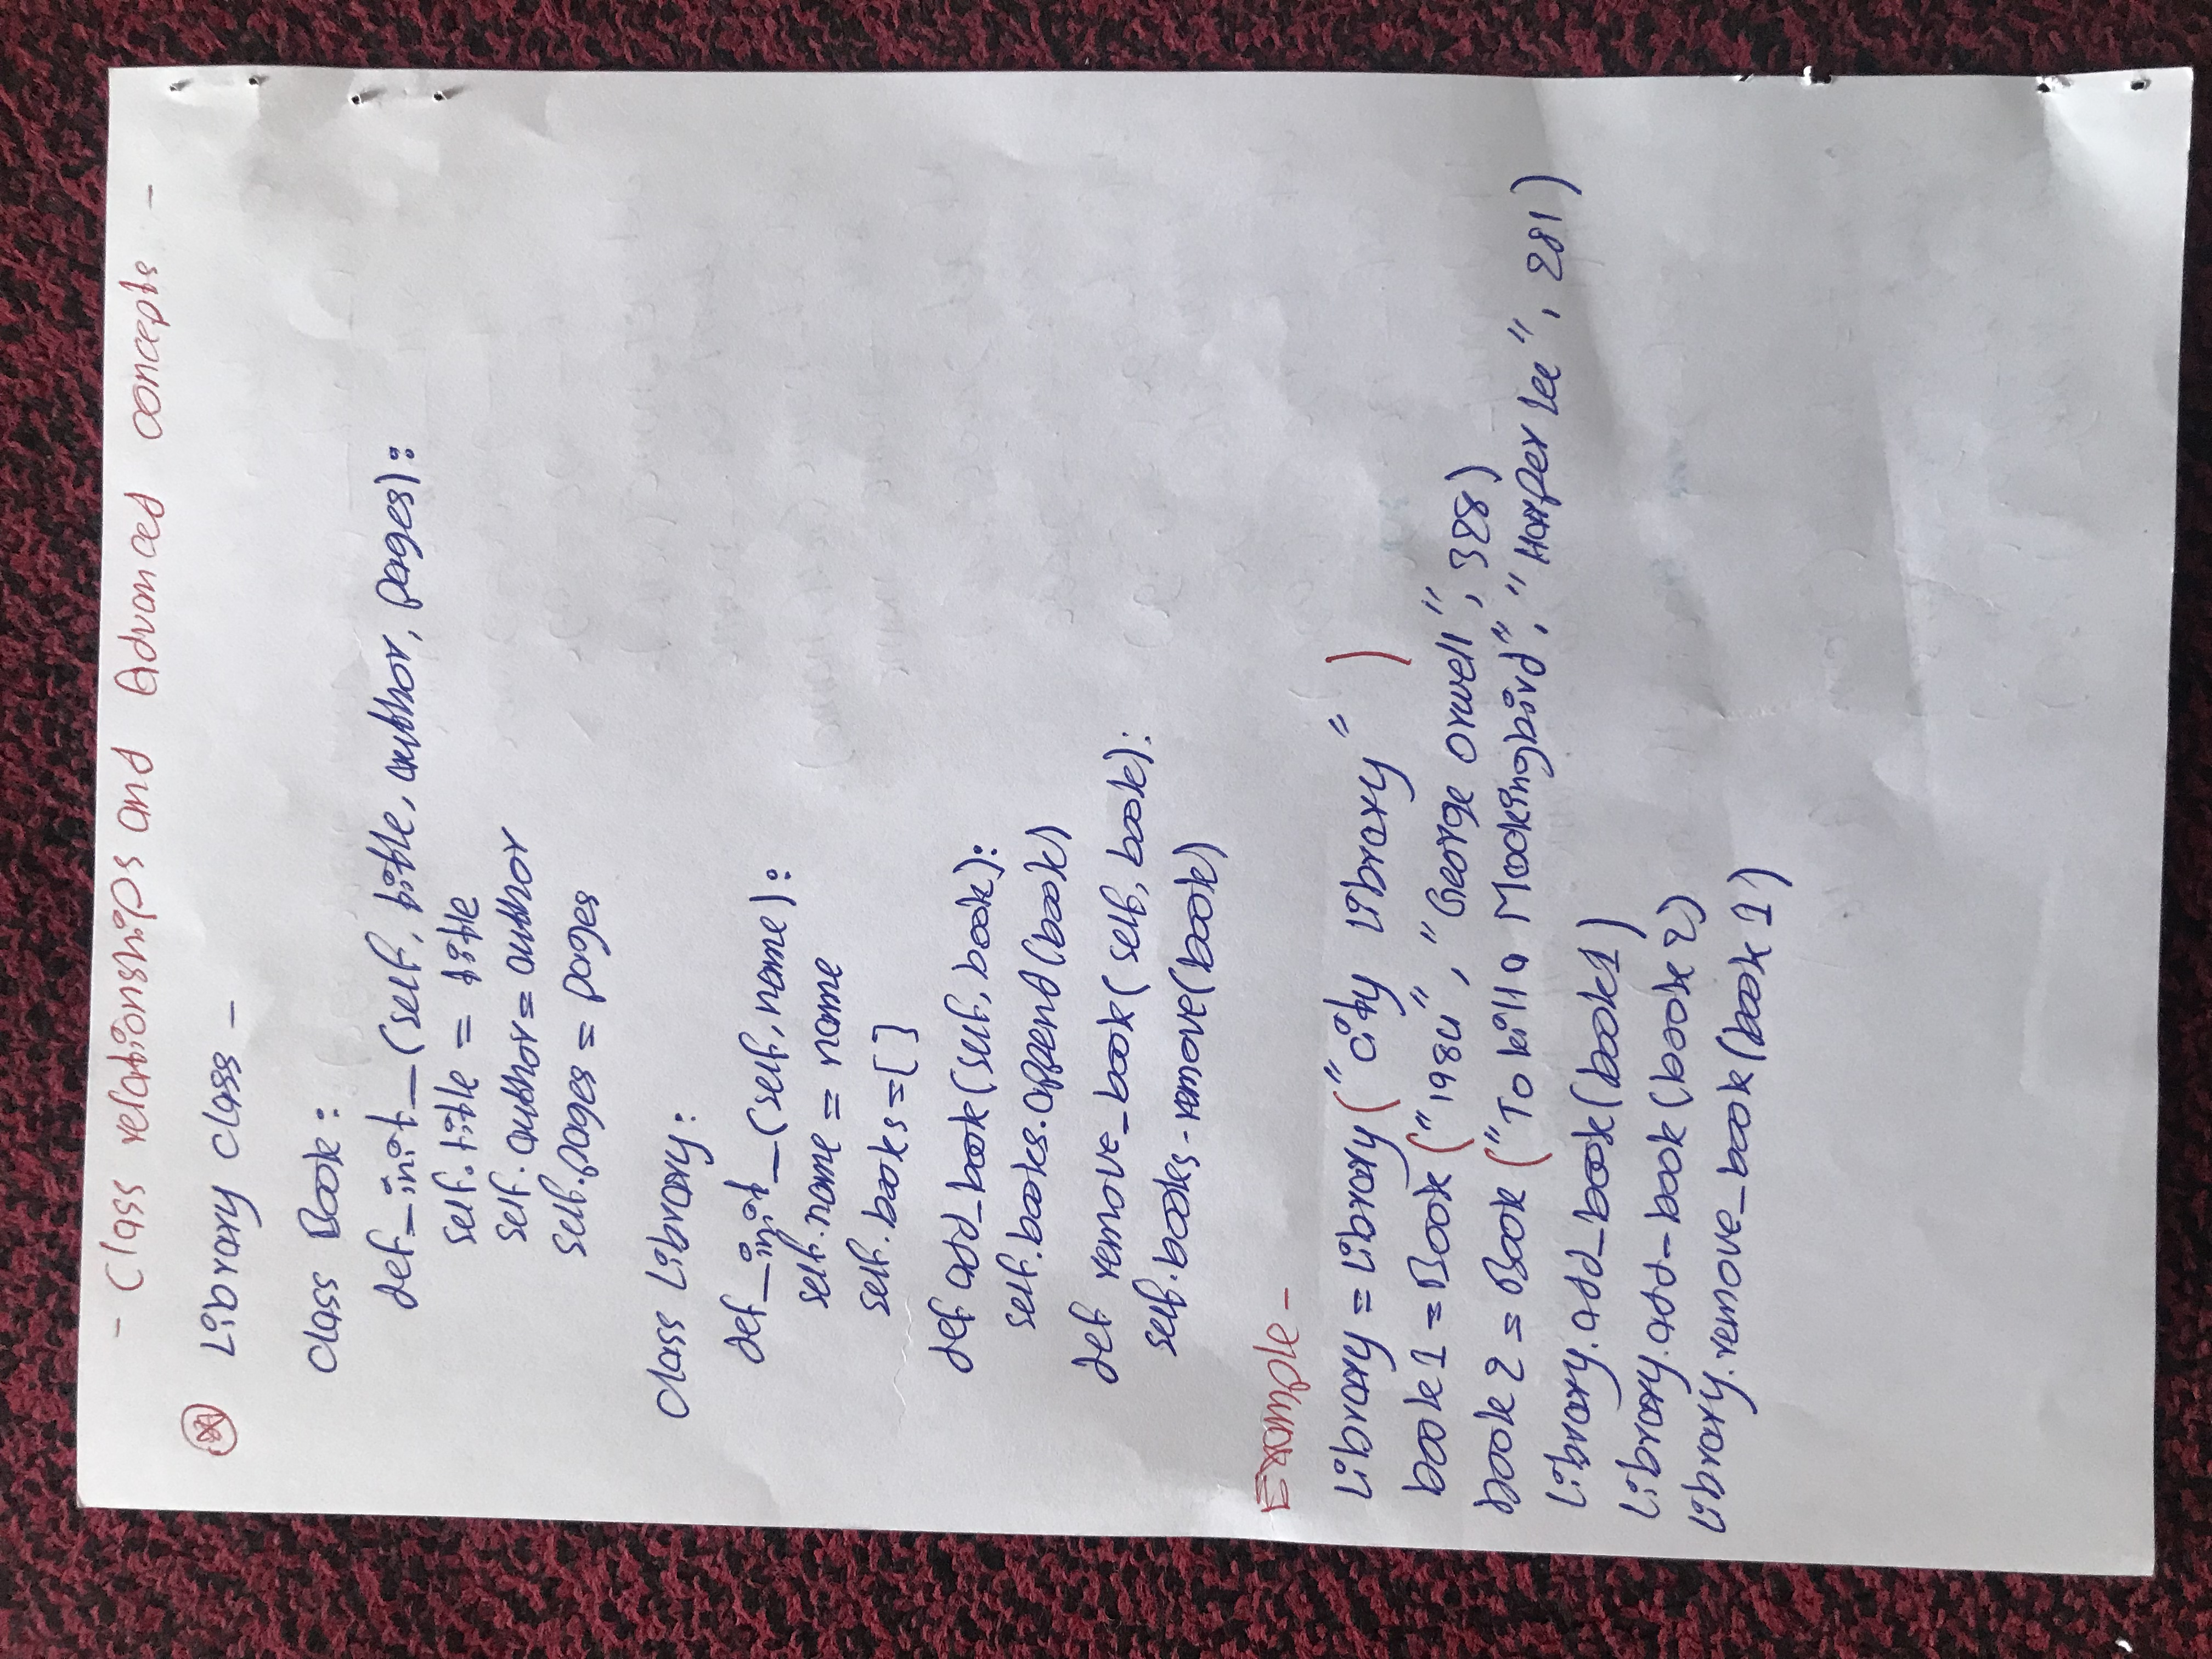 - Class relationships and Advanced concepts -
Library class -
class Book:
def_init_(self, title, author, pages):
self.title = title
self.author = author
self.pages = pages
class Library:
def_init_(self, name):
self.name = name
self.books = []
def add_book(self, book):
self.books.append(book)
def remove_book(self, book):
self.books.remove(book)
Example -
Library = Library("City Library")
book1 = Book("1984", "George Orwell", 328)
book2 = Book("To kill a Mockingbird", "Harper Lee", 281)
Library.add_book(book1)
Library.add_book(book2)
Library.remove_book(book1)